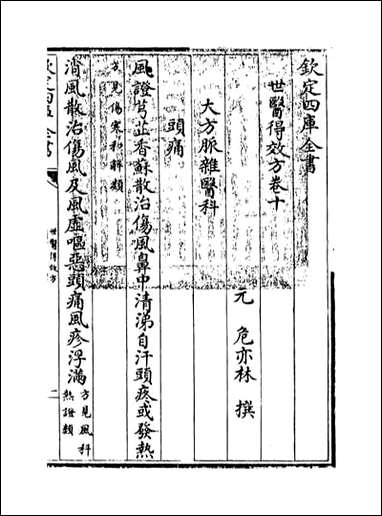 欽定四庫全書
世醫得效方卷十
元 危亦林 撰
大方脈雜醫科
頭痛
風證芎芷香蘇散治傷風鼻中清涕自汗頭疼或發熱
方見傷寒和解類
消風散治傷風及風虛嘔惡頭痛風疹浮滿
方見風科
熱證類
世醫得效方